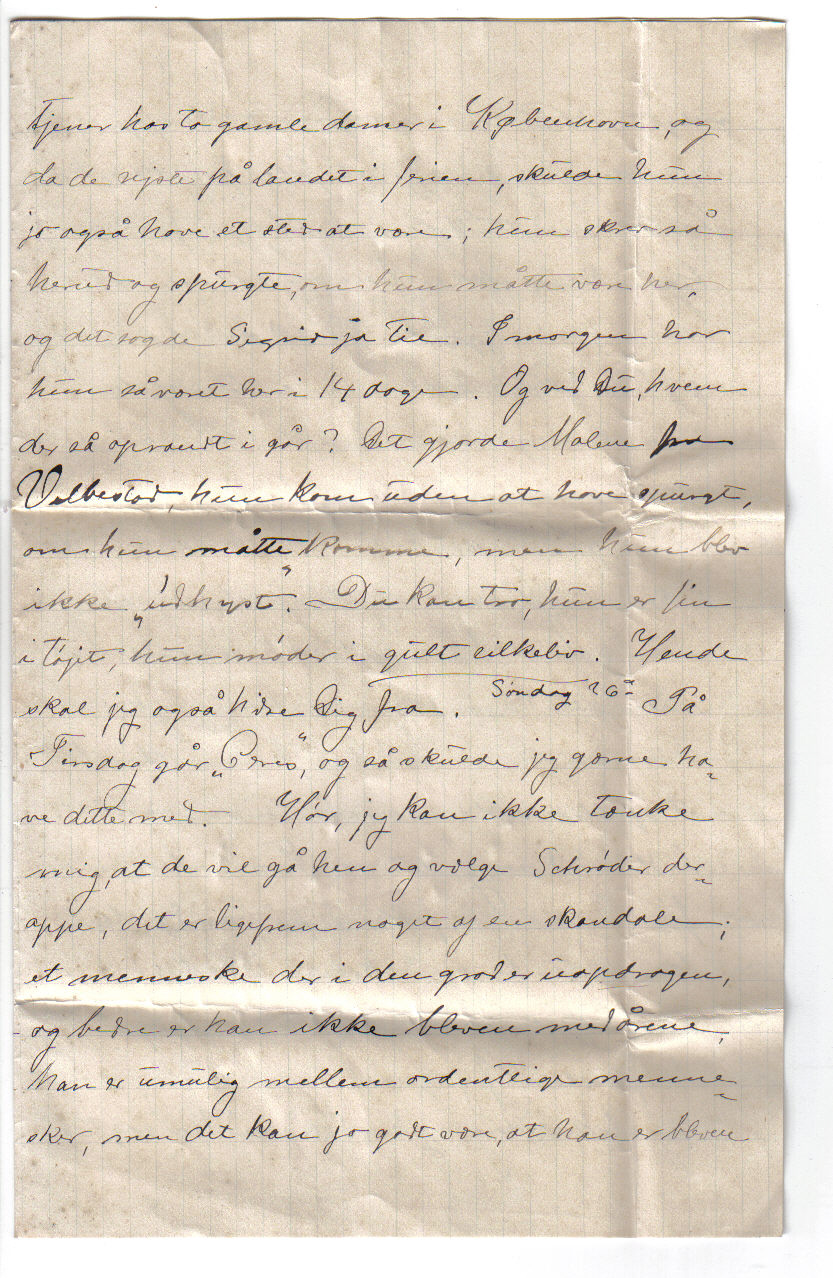 tjener hos to gamle damer i København, og
da de rejste på landet i ferien, skulde hun
jo også have et sted at være; hun skrev så
herud og spurgte, om hun måtte være her,
og det sagde Sigrid ja til. I morgen har
hun så været her i 14 dage. Og ved Du, hvem
der så oprandt i går? Det gjorde Malene fra
Velbestad, hun kom uden at have spurgt,
om hun måtte komme, men hun blev
ikke „udhyst“. Du kan tro, hun er fin
i tøjet, hun møder i gult silkeliv. Hende
skal jeg også hilse Dig fra. Søndag 26de På
Tirsdag går „Ceres“, og så skulde jeg gærne ha-
ve dette med. Hør, jeg kan ikke tænke
mig, at de vil gå hen og vælge Schrøder der-
oppe, det er ligefrem noget af en skandale;
et menneske der i den grad er uopdragen,
og bedre er han ikke bleven med årene,
han er umulig mellem ordentlige menne-
sker, men det kan jo godt være, at han er bleven